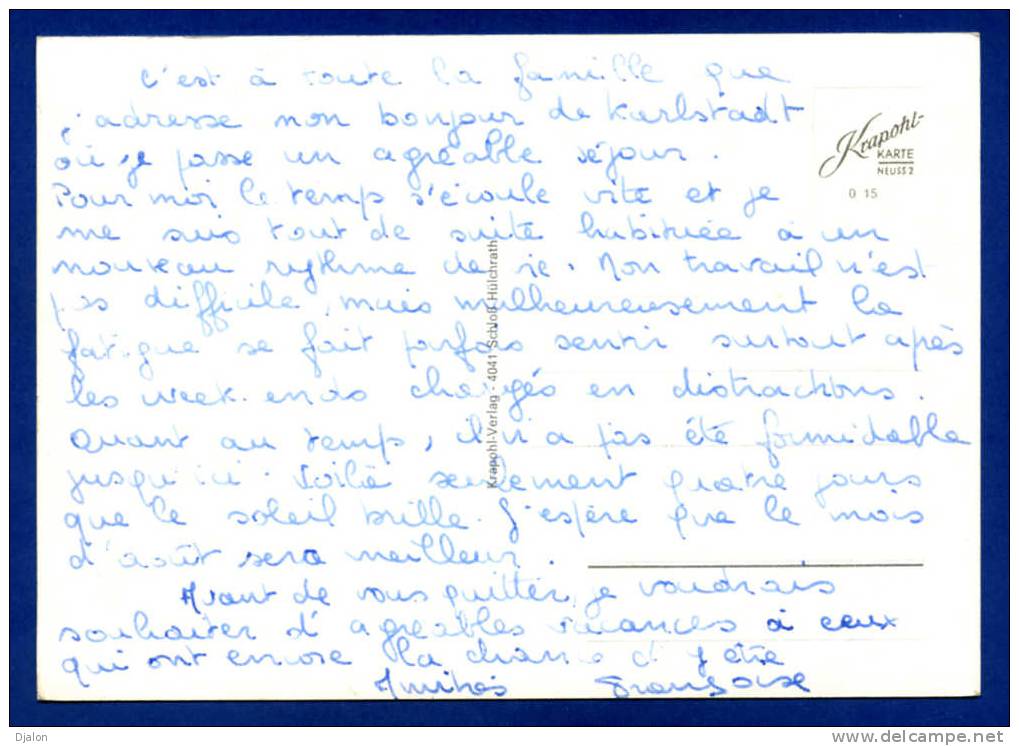 C'est à toute la famille que
j'adresse mon bonjour de Karlstadt
où je passe un agréable séjour.
Pour moi le temps s'écoule vite et je
me suis tout de suite habituée à un
nouveau rythme de vie. Mon travail n'est
pas difficile, mais malheureusement la
fatigue se fait parfois sentir surtout après
les week-ends chargés en distractions.
Quant au temps, il n'a pas été formidable
jusqu'ici. Voilà seulement quatre jours
que le soleil brille. J'espère que le mois
d'août sera meilleur.
Avant de vous quitter, je voudrais
souhaiter d'agréables vacances à ceux
qui ont encore la chance d'y être
Amitiés Françoise
Krapohl-
KARTE
NEUSS 2
0 15
Krapohl-Verlag - 4041 Schloß Hülchrath
Djalon
www.delcampe.net